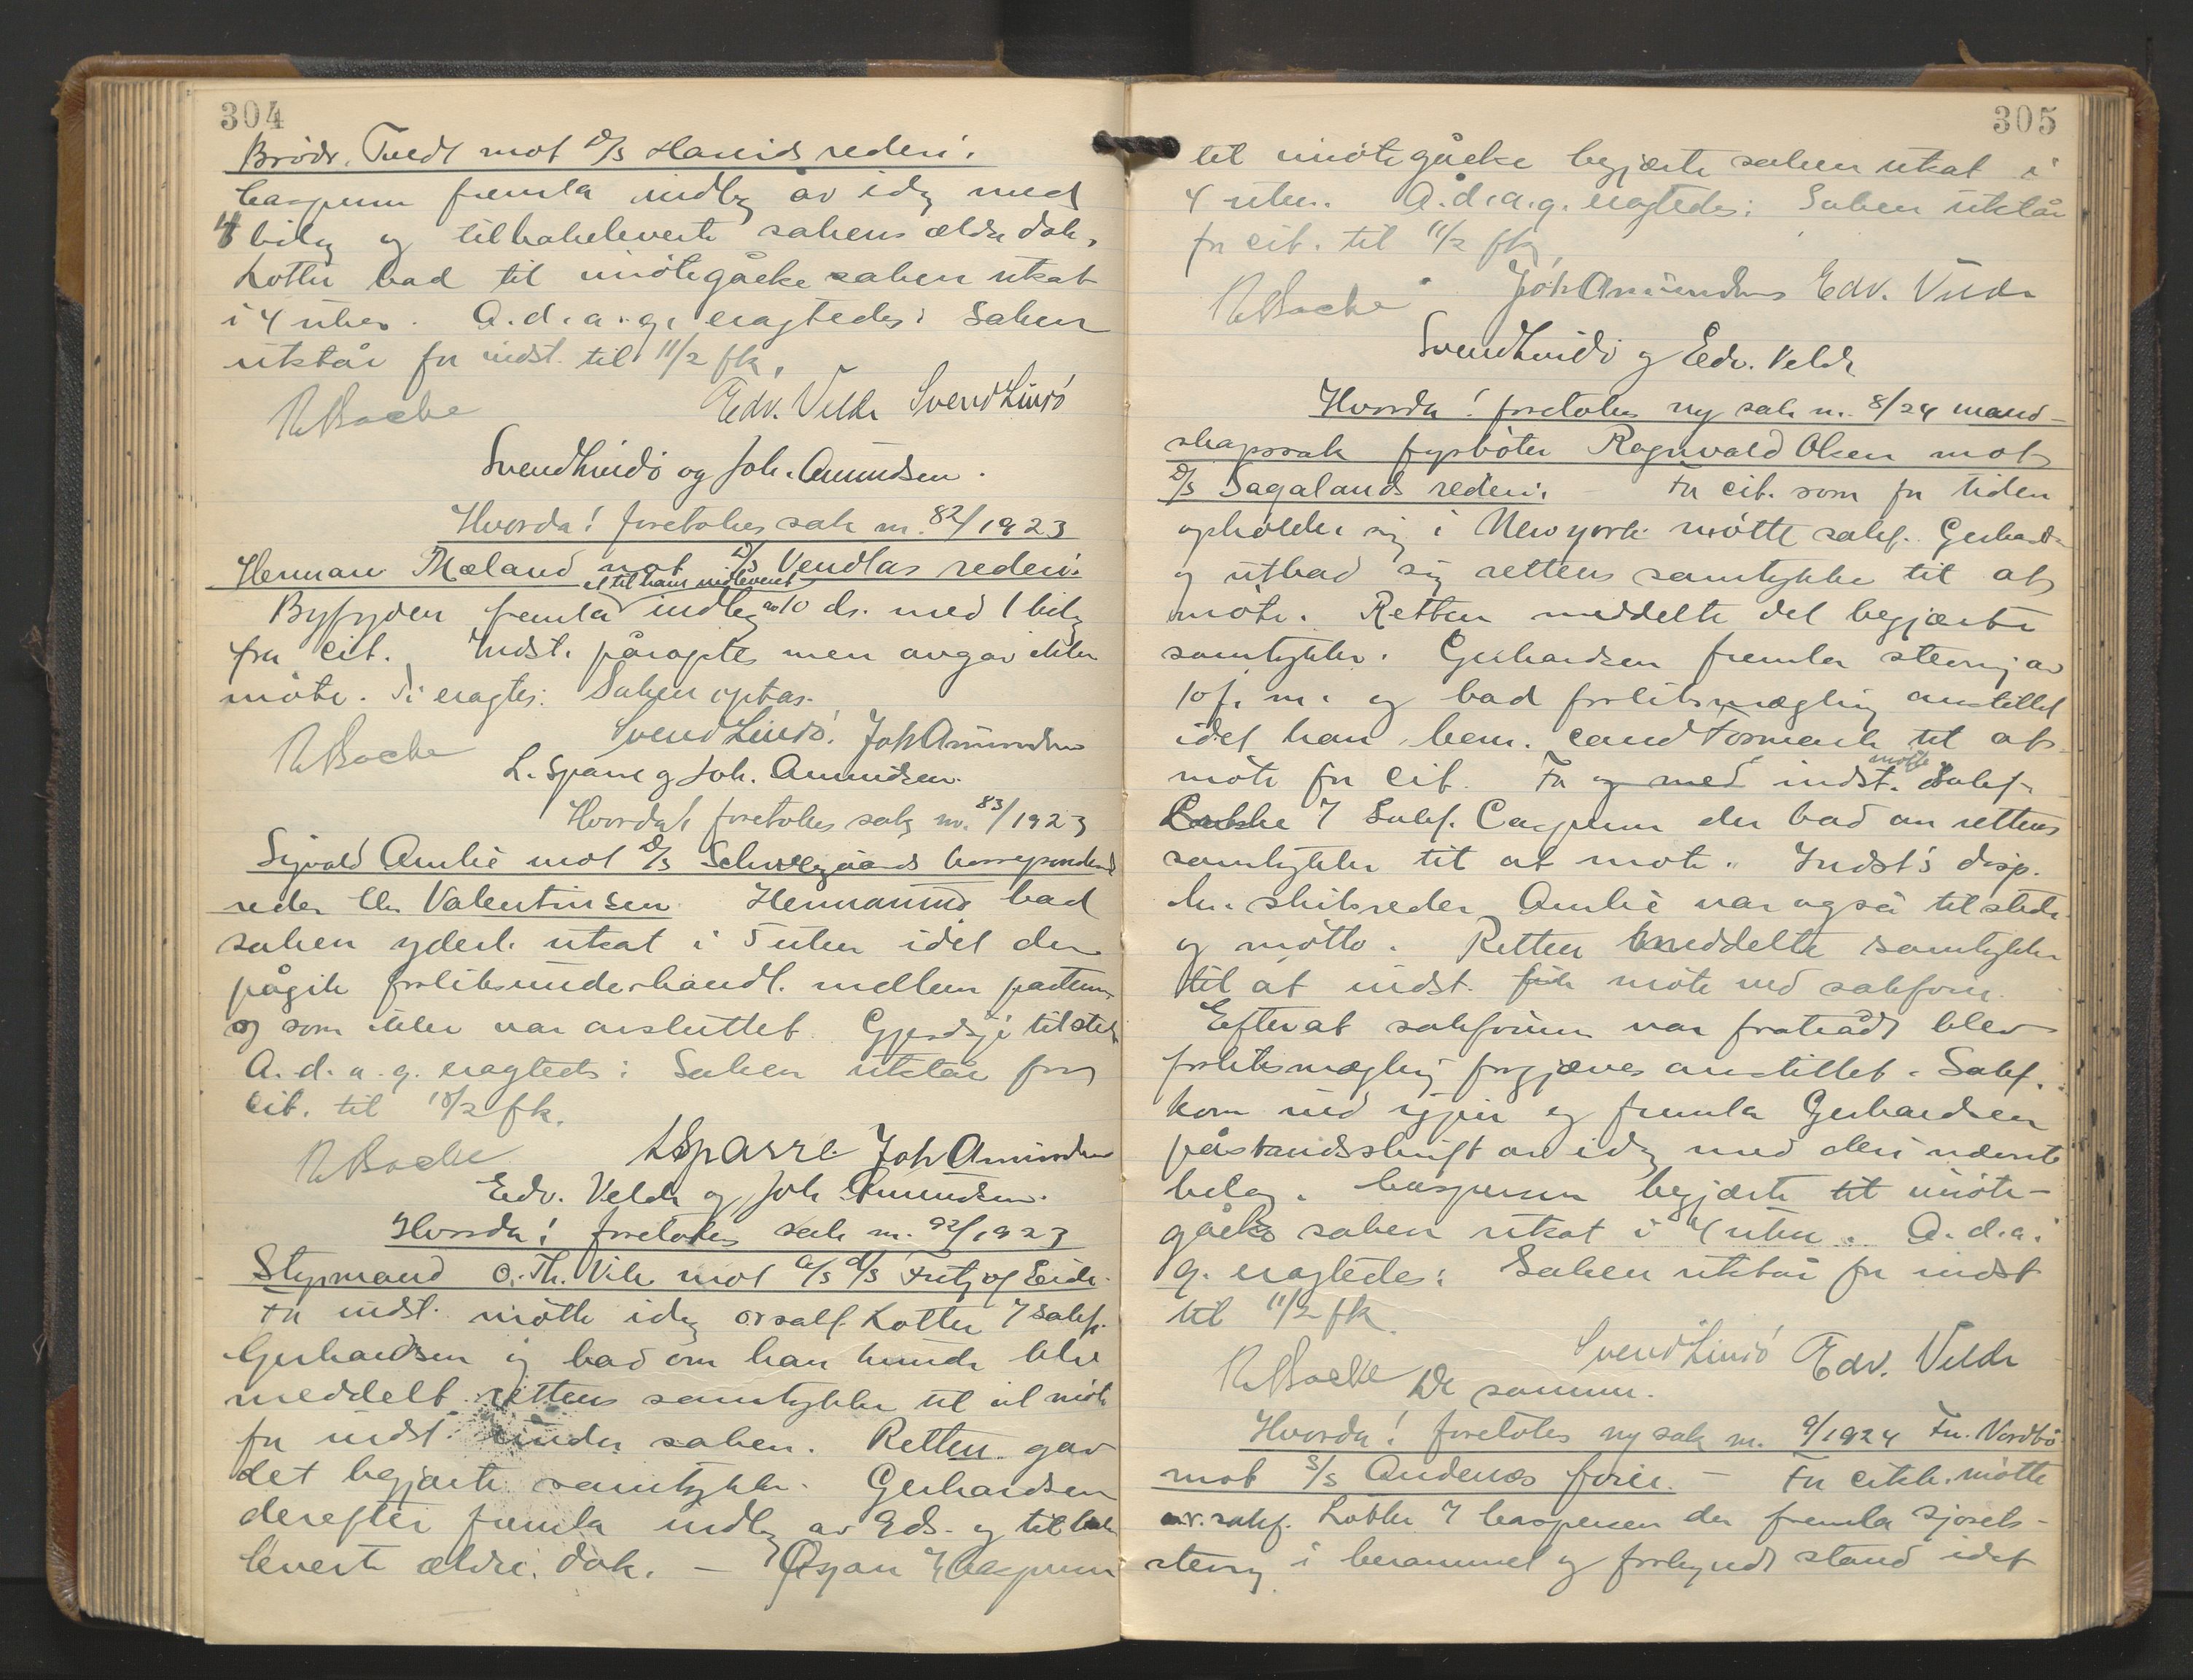 304
Brødr. Tvedt mot D/S Havids rederi.
Caspersen fremla indlæg av idag med
4 bilag og tilbakeleverte sakens ældre dok.
Lotter bad til imøtegåelse saken utsat
i 4 uker. A.d.a.g. eragtedes: Saken
utstår for indst. til 11/2 fk.
Edv. Velde Svend Lindö
Svend Lindö og Joh. Amundsen.
Hvorda! foretokes sak nr. 82/1923
Herman Mæland mot D/S Vendlas rederi.
et til ham indlevert
Byfogden fremla indlæg av 10 ds. med 1 bilag
fra cit. Indst. påroptes men avgav ikke
møte. Ti eragtes: Saken optas.
Svend Lindö. Joh Amundsen
L. Sparre og Joh. Amundsen.
Hvorda! foretokes sak nr. 83/1923
Sigvald Amlie mot D/S Schweigaards korresponderende
reder Chr Valentinsen. Hermansen bad
saken yderl. utsat i 5 uker idet der
pågik forliksunderhandl. mellem parterne
og som ikke var avsluttet. tilsted
A.d.a.g. eragtedes: Saken utstår for
cit. til 18/2 fk.
L Sparre. Joh Amundsen
Edv. Velde og Joh Amundsen.
Hvorda! foretokes sak nr. 92/1923
Styrmand O. Th. Vik mot A/S D/S Fritjof Eide.
For indst. møtte idag orsakf. Lotter v/ sakf.
Gerhardsen og bad om han kunde blive
meddelt rettens samtykke til at møte
for indst. under saken. Retten gav
det begjærte samtykke. Gerhardsen
derefter fremla indlæg av Eds. og tilbake
leverte ældre dok. — v/ Caspersen
305
til imøtegåelse begjærte saken utsat i
4 uker. A.d.a.g. eragtedes: Saken utstår
for cit. til 11/2 fk.
Joh Amundsen Edv. Velde
Svend Lindö og Edv. Velde
Hvorda! foretokes ny sak nr. 8/24 mand-
skapssak fyrbøter Ragnvald Olsen mot
D/S Sagalands rederi. — For cit. som for tiden
opholder sig i New york møtte sakf. Gerhardsen
og utbad sig rettens samtykke til at
møte. Retten meddelte det begjærte
samtykke. Gerhardsen fremla stevning av
10 f. m. og bad forliksmægling anstillet
idet han bem. cand Formark til at
møte for cit. For og med indst. møtte Sakf.
Lothe v/ Sakf. Caspersen der bad om rettens
samtykke til at møte. Indst's disp.
hr. skibsreder Amlie var også tilstede
og møtte. Retten meddelte samtykke
til at indst. fik møte ved sakfører.
Efterat sakførerne var fratrådt blev
forliksmægling forgjæves anstillet. Sakf.
kom ind igjen og fremla Gerhardsen
påstandsskrift av idag med deri nævnte
bilag. Caspersen begjærte til imøte-
gåelse saken utsat i 4 uker. A.d.a.
g. eragtedes: Saken utstår for indst
til 11/2 fk.
Svend Lindö Edv. Velde
De samme.
Hvorda! foretokes ny sak nr. 9/1924 Fr. Nordbö
mot S/S Andenæs fører. — For citk. møtte
o.r.sakf. Lothe v/ Caspersen der fremla sjørets-
stevng i berammet og forkyndt stand idet